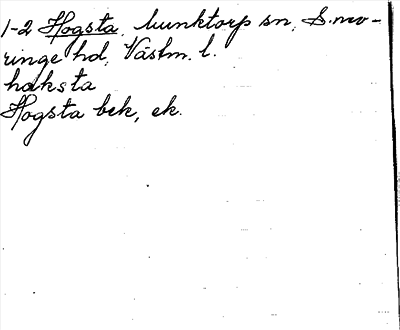 1-2 Hogsta, Munktorp sn, S.nro-
ringe hd, Västm. l.
haksta
Hogsta bek, ek.